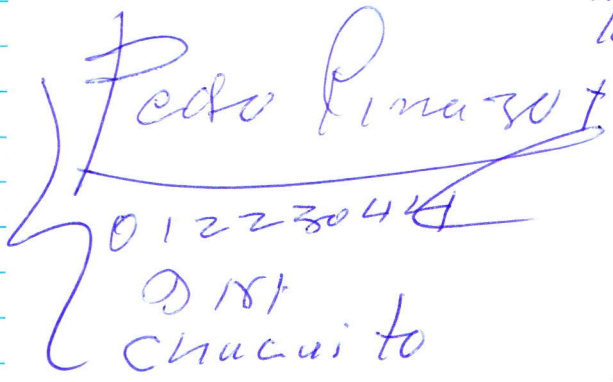 Pedro Pinazo
01223044
DNI
Chucuito